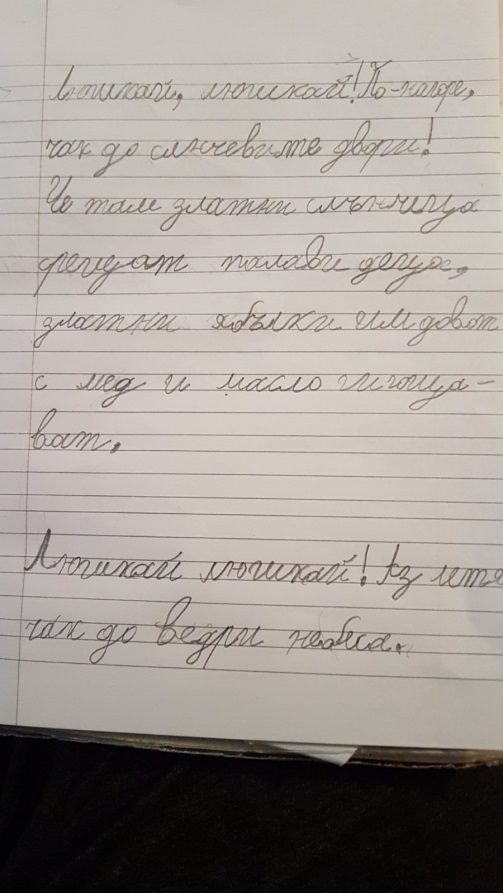 Люшкай, люшкай! По-нагоре,
чак до слънчевите двори!
Че там златни слънчица
гледат палави деца,
златни ябълки им дават
с мед и масло ги гоща-
ват.
Люшкай люшкай! Аз летя
чак до ведри небеса.